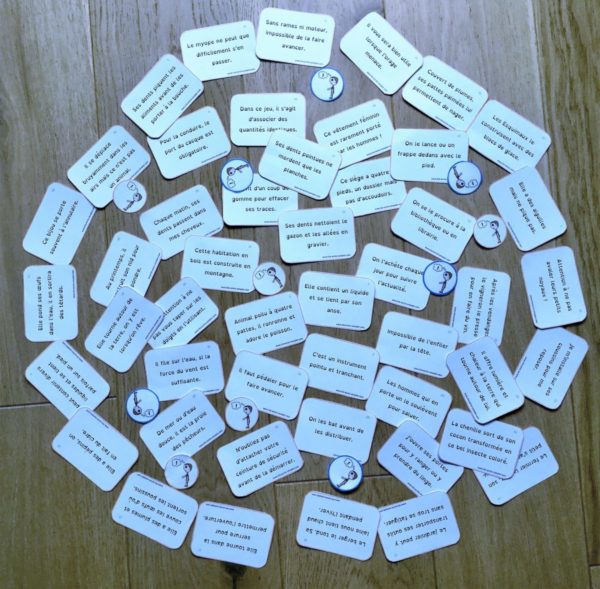 Sans rames ni moteur,
impossible de la faire
avancer.
Le myope ne peut que
difficilement s'en
passer.
Il vous sera bien utile
lorsque l'orage
menace.
Ses dents piquent les
aliments avant de les
porter à la bouche.
Couvert de plumes,
ses pattes palmées lui
permettent de nager.
Dans ce jeu, il s'agit
d'associer des
quantités identiques.
Ce vêtement féminin
est rarement porté
par les hommes !
Les Esquimaux le
construisent avec des
blocs de glace.
Pour la conduire, le
port du casque est
obligatoire.
Il se déplace
bruyamment dans les
airs mais ce n'est pas
un animal.
Ses dents pointues ne
mordent que les
planches.
On le lance ou on
frappe dedans avec le
pied.
Ce siège à quatre
pieds, un dossier mais
pas d'accoudoirs.
d'un coup de
gomme pour effacer
ses traces.
Elle a des aiguilles
mais ne pique pas.
Ce bijou se porte
souvent à l'annulaire.
Chaque matin, ses
dents passent dans
mes cheveux.
Ses dents nettoient le
gazon et les allées en
gravier.
On se le procure à la
bibliothèque ou en
librairie.
Au printemps, il
fait son nid pour
pondre.
Cette habitation en
bois est construite en
montagne.
On l'achète chaque
jour pour suivre
l'actualité.
Attention à ne pas
avaler leurs petits
noyaux !
Elle pond ses œufs
dans l'eau, il en sortira
des têtards.
Elle contient un liquide
et se tient par son
anse.
Après les vendanges,
le vigneron le presse
pour en faire du vin.
Elle tourne autour de
la terre, on y est
lorsqu'on rêve.
Attention à ne
pas vous taper sur les
doigts en l'utilisant.
Animal poilu à quatre
pattes, il ronronne et
adore le poisson.
Impossible de l'enfiler
par la tête.
Il offre lumière et
chaleur à la terre qui
tourne autour de lui.
Je m'assois sur ses
coussins pour me
reposer.
Il file sur l'eau, si la
force du vent est
suffisante.
C'est un instrument
pointu et tranchant.
Il faut pédaler pour le
faire avancer.
Les hommes qui en
porte un le soulèvent
pour saluer.
De mer ou d'eau
douce, il est la proie
des pêcheurs.
On les bat avant de
les distribuer.
La chenille sort de son
cocon transformée en
ce bel insecte coloré.
Elle a des pépins, on
en fait du cidre.
N'oubliez pas
d'attacher votre
ceinture de sécurité
avant de la démarrer.
J'ouvre ses portes
pour y ranger ou y
prendre du linge.
Elle a des plumes et
couve les œufs d'où
sortent les poussins.
Elle tourne dans la
serrure pour
permettre l'ouverture.
Le berger le tond. Sa
laine nous tient chaud
pendant l'hiver.
Le jardinier peut y
transporter ses outils
sans trop se fatiguer.